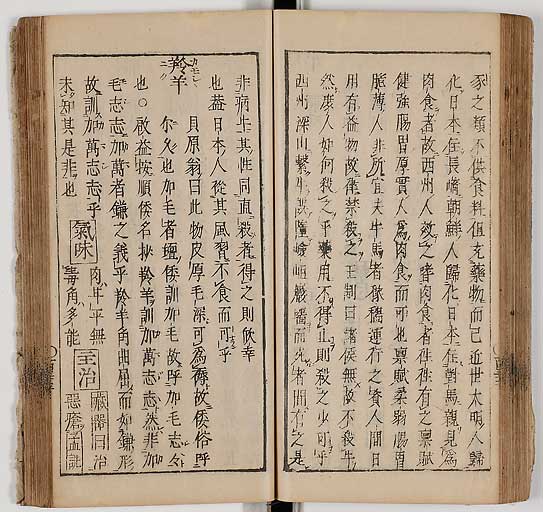 豕之類不供食料但充藥物而已近世大明人歸
化日本在長崎朝鮮人歸化日本在對馬親見爲
肉食者故西州人效之嗜肉食者徃徃有之稟賦
健強腸胃厚實人爲肉食而可也稟賦柔弱腸胃
脆薄人非所宜夫牛馬者像穡運行之資人間日
用有益物故律禁殺之王制曰諸侯無故不殺牛
然庶人如何殺之乎藥用不得止則殺之少可乎
西州深山繫牛
非病牛其性同直殺者得之則欣幸
也蓋日本人從其風習不食而可乎
羚羊
貝原翁曰此物皮厚毛深可爲褥故倭俗呼
尓久也加毛者氊倭訓加毛故呼加毛志々
也○啟益按順倭名抄羚羊訓加萬志志然非加
毛志志加萬者鎌之義乎羚羊角曲屈而如鎌形
故訓加萬志志乎
未知其是非也
氣味
肉甘平無
毒角多能
主治
藏器曰治
惡瘡孟詵